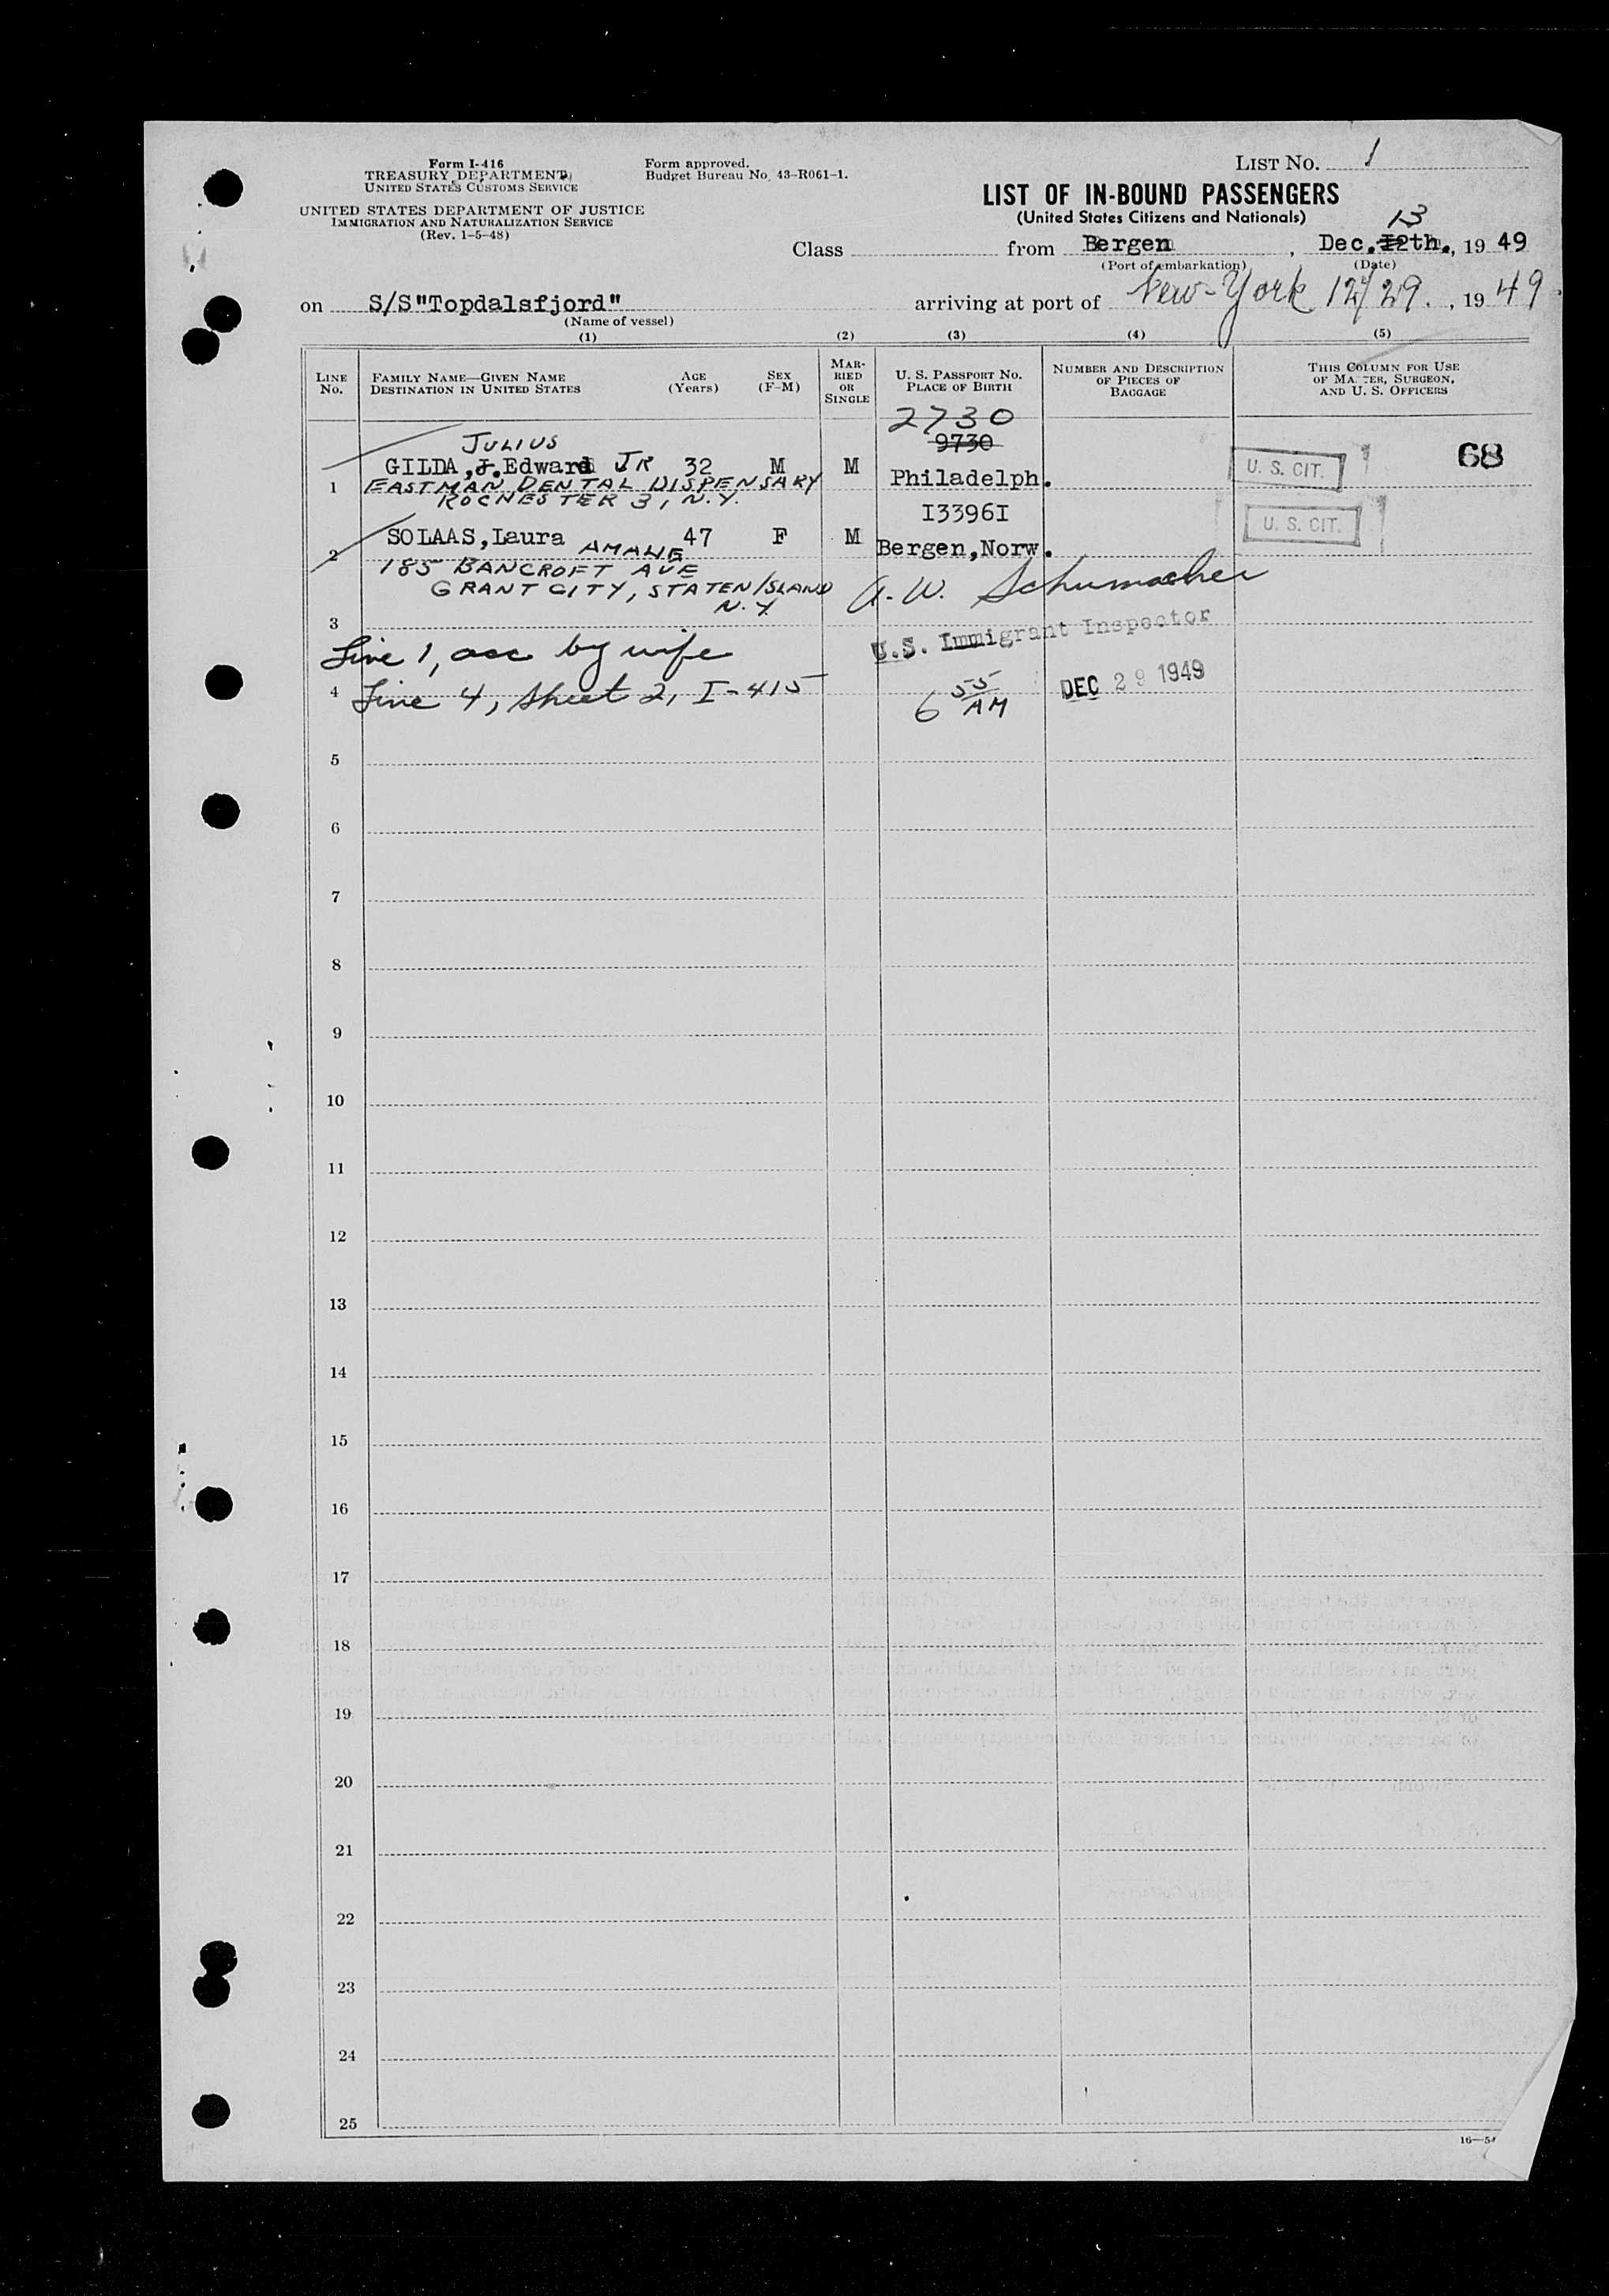 Form I-416
TREASURY DEPARTMENT
UNITED STATES CUSTOMS SERVICE
UNITED STATES DEPARTMENT OF JUSTICE
IMMIGRATION AND NATURALIZATION SERVICE
(Rev. 1-5-48)
Form approved.
Budget Bureau No. 43-R061-1.
LIST NO. 1
LIST OF IN-BOUND PASSENGERS
(United States Citizens and Nationals)
13
Class from Bergen, Dec. 12th., 19 49
(Port of embarkation) (Date)
on S/S"Topdalsfjord" arriving at port of New-York 12/29., 19 49
(Name of vessel)
(1) (2) (3) (4) (5)
LINE NO. FAMILY NAME—GIVEN NAME DESTINATION IN UNITED STATES AGE (Years) SEX (F-M) MARRIED OR SINGLE U. S. PASSPORT NO. PLACE OF BIRTH NUMBER AND DESCRIPTION OF PIECES OF BAGGAGE THIS COLUMN FOR USE OF MASTER, SURGEON, AND U. S. OFFICERS
2730
JULIUS 9730
GILDA, J. Edward JR 32 M M Philadelph. U. S. CIT. 68
1 EASTMAN DENTAL DISPENSARY
ROCHESTER 3, N.Y.
I3396I
SOLAAS, Laura 47 F M Bergen, Norw. U. S. CIT.
2
185 BANCROFT AVE
GRANT CITY, STATEN ISLAND
N.Y.
A. W. Schumacher
3
U.S. Immigrant Inspector
Line 1, acc by wife
4 Line 4, Sheet 2, I-415
6 55 AM DEC 29 1949
5
6
7
8
9
10
11
12
13
14
15
16
17
18
19
20
21
22
23
24
25